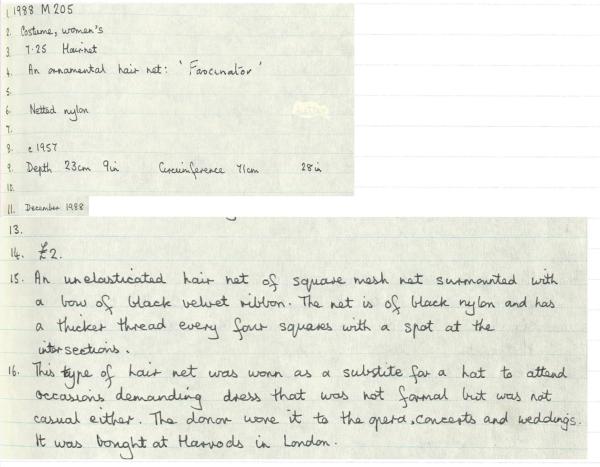 1. 1988 M 205
2. Costume, women's
3. 7.25 Hairnet
4. An ornamental hair net: 'Fascinator'
5.
6. Netted nylon
7.
8. c 1957
9. Depth 23cm 9in Circumference 71cm 28in
10.
11. December 1988
13.
14. £2.
15. An unelasticated hair net of square mesh net surmounted with
a bow of black velvet ribbon. The net is of black nylon and has
a thicker thread every four squares with a spot at the
intersections.
16. This type of hair net was worn as a substite for a hat to attend
occasions demanding dress that was not formal but was not
casual either. The donor wore it to the opera, concerts and weddings.
It was bought at Harrods in London.